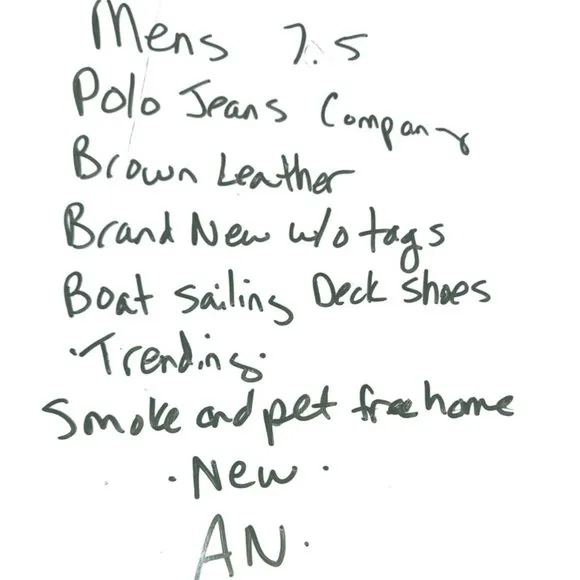 Mens 7.5
Polo Jeans Company
Brown Leather
Brand New w/o tags
Boat sailing Deck shoes
·Trending·
Smoke and pet free home
·New·
AN·